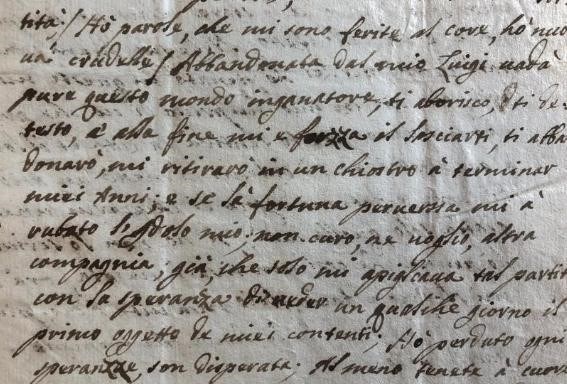 tità! Hò parole, che mi sono ferite al core, hò nuo
ua crudelle! Abbandonata dal mio Luigi uada
pure questo mondo inganatore, ti aborisco, d ti de-
testo, e alla fine mi e forza il lasciarti, ti abba
donarò, mi ritirarò in un chiostro à terminar
miei Anni, e se la fortuna peruersa mi à
rubato l'Idolo mio, non curo, ne uoglio, altra
compagnia, già, che solo mi apigliaua tal partit
con la speranza di ueder un qualche giorno il
primo oggetto de miei contenti; Hò perduto ogni
speranze, son disperata; Al meno tenete à cuore